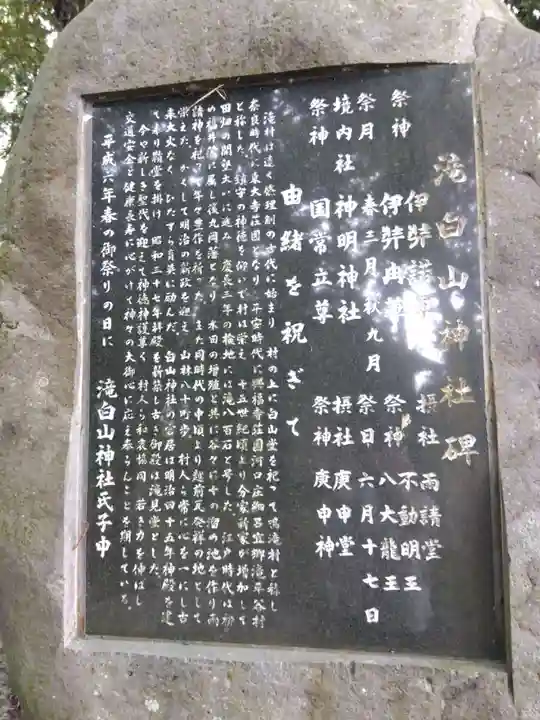 滝白山神社碑
祭神 伊弉諾尊
伊弉冉尊
祭月 春三月 秋九月
境内社 神明神社
祭神 国常立尊
摂社 雨請堂
不動明王
祭神 八大龍王
祭日 六月十七日
摂社 庚申堂
祭神 庚申神
由緒を祝ぎて
滝村は遠く条理制の古代に始まり 村の上に白山堂を祀って鳴滝村と称し
奈良時代に東大寺荘園となり 平安時代に興福寺荘園河口庄細呂宜郷滝草谷村
と称した 鎮守の神徳を仰いで村は栄え 十五世紀頃より分家新家が増加して
田畑の開墾大いに進み 慶長三年の検地には滝八百石と号した 江戸時代は初
め福井藩に属し後丸岡藩となり 水田の増殖と共に谷々に十の溜め池を作り雨
請神を祀って年々豊作を祈った また同時代の中頃より越前瓦発祥の地として
栄えた かくして明治の新政を迎え 山林八十町歩 村人ら常に心を一にし古
来大火なく ひたすら貢英に励んだ 白山神社の宮居は明治四十五年神殿を建
て 来り鞘堂を掛け 昭和三十七年拝殿を新築し古き御殿は滝見堂とした
今や新しき聖代を迎えて神徳神護尊く 村人ら和衷協同 若き力を伸ばし
交通安全と健康長寿に心がけて神々の大御心に応え奉らんことを期している。
平成六年春の御祭りの日に 滝白山神社氏子中